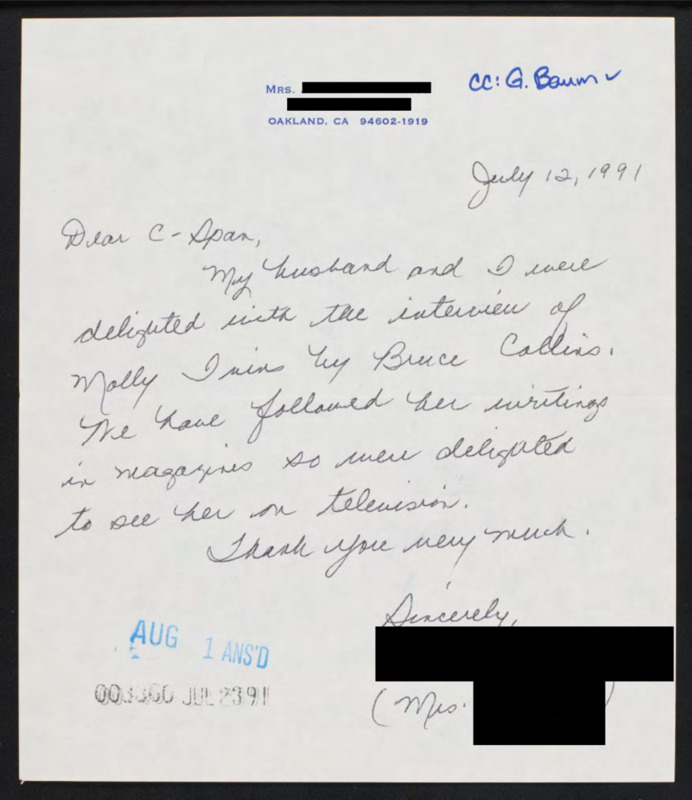 MRS.
OAKLAND, CA 94602-1919
cc: G. Baum ✓
July 12, 1991
Dear C-Span,
My husband and I were
delighted with the interview of
Molly Ivins by Bruce Collins.
We have followed her writings
in magazines so were delighted
to see her on television.
Thank you very much.
Sincerely,
(Mrs. )
AUG 1 ANS'D
003360 JUL 23 91